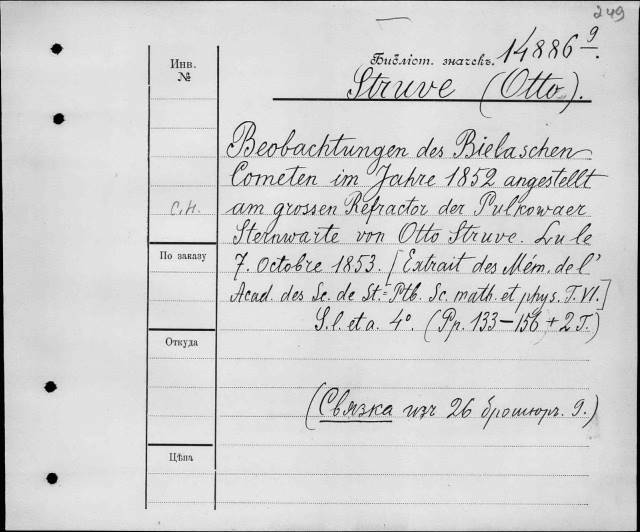 249
Библіот. значекъ. 14886 9.
Инв.
№
Struve (Otto).
Beobachtungen des Bielaschen
Cometen im Jahre 1852 angestellt
С.Н.
am grossen Refractor der Pulkowaer
Sternwarte von Otto Struve. Lu le
По заказу
7. Octobre 1853. [Extrait des Mém. de l'
Acad. des Sc. de St.=Ptb. Sc. math. et phys. T. VI.]
S. l. et a. 4°. (Pp. 133–156 + 2 T.)
Откуда
(Связка изъ 26 брошюръ. 9.)
Цѣна